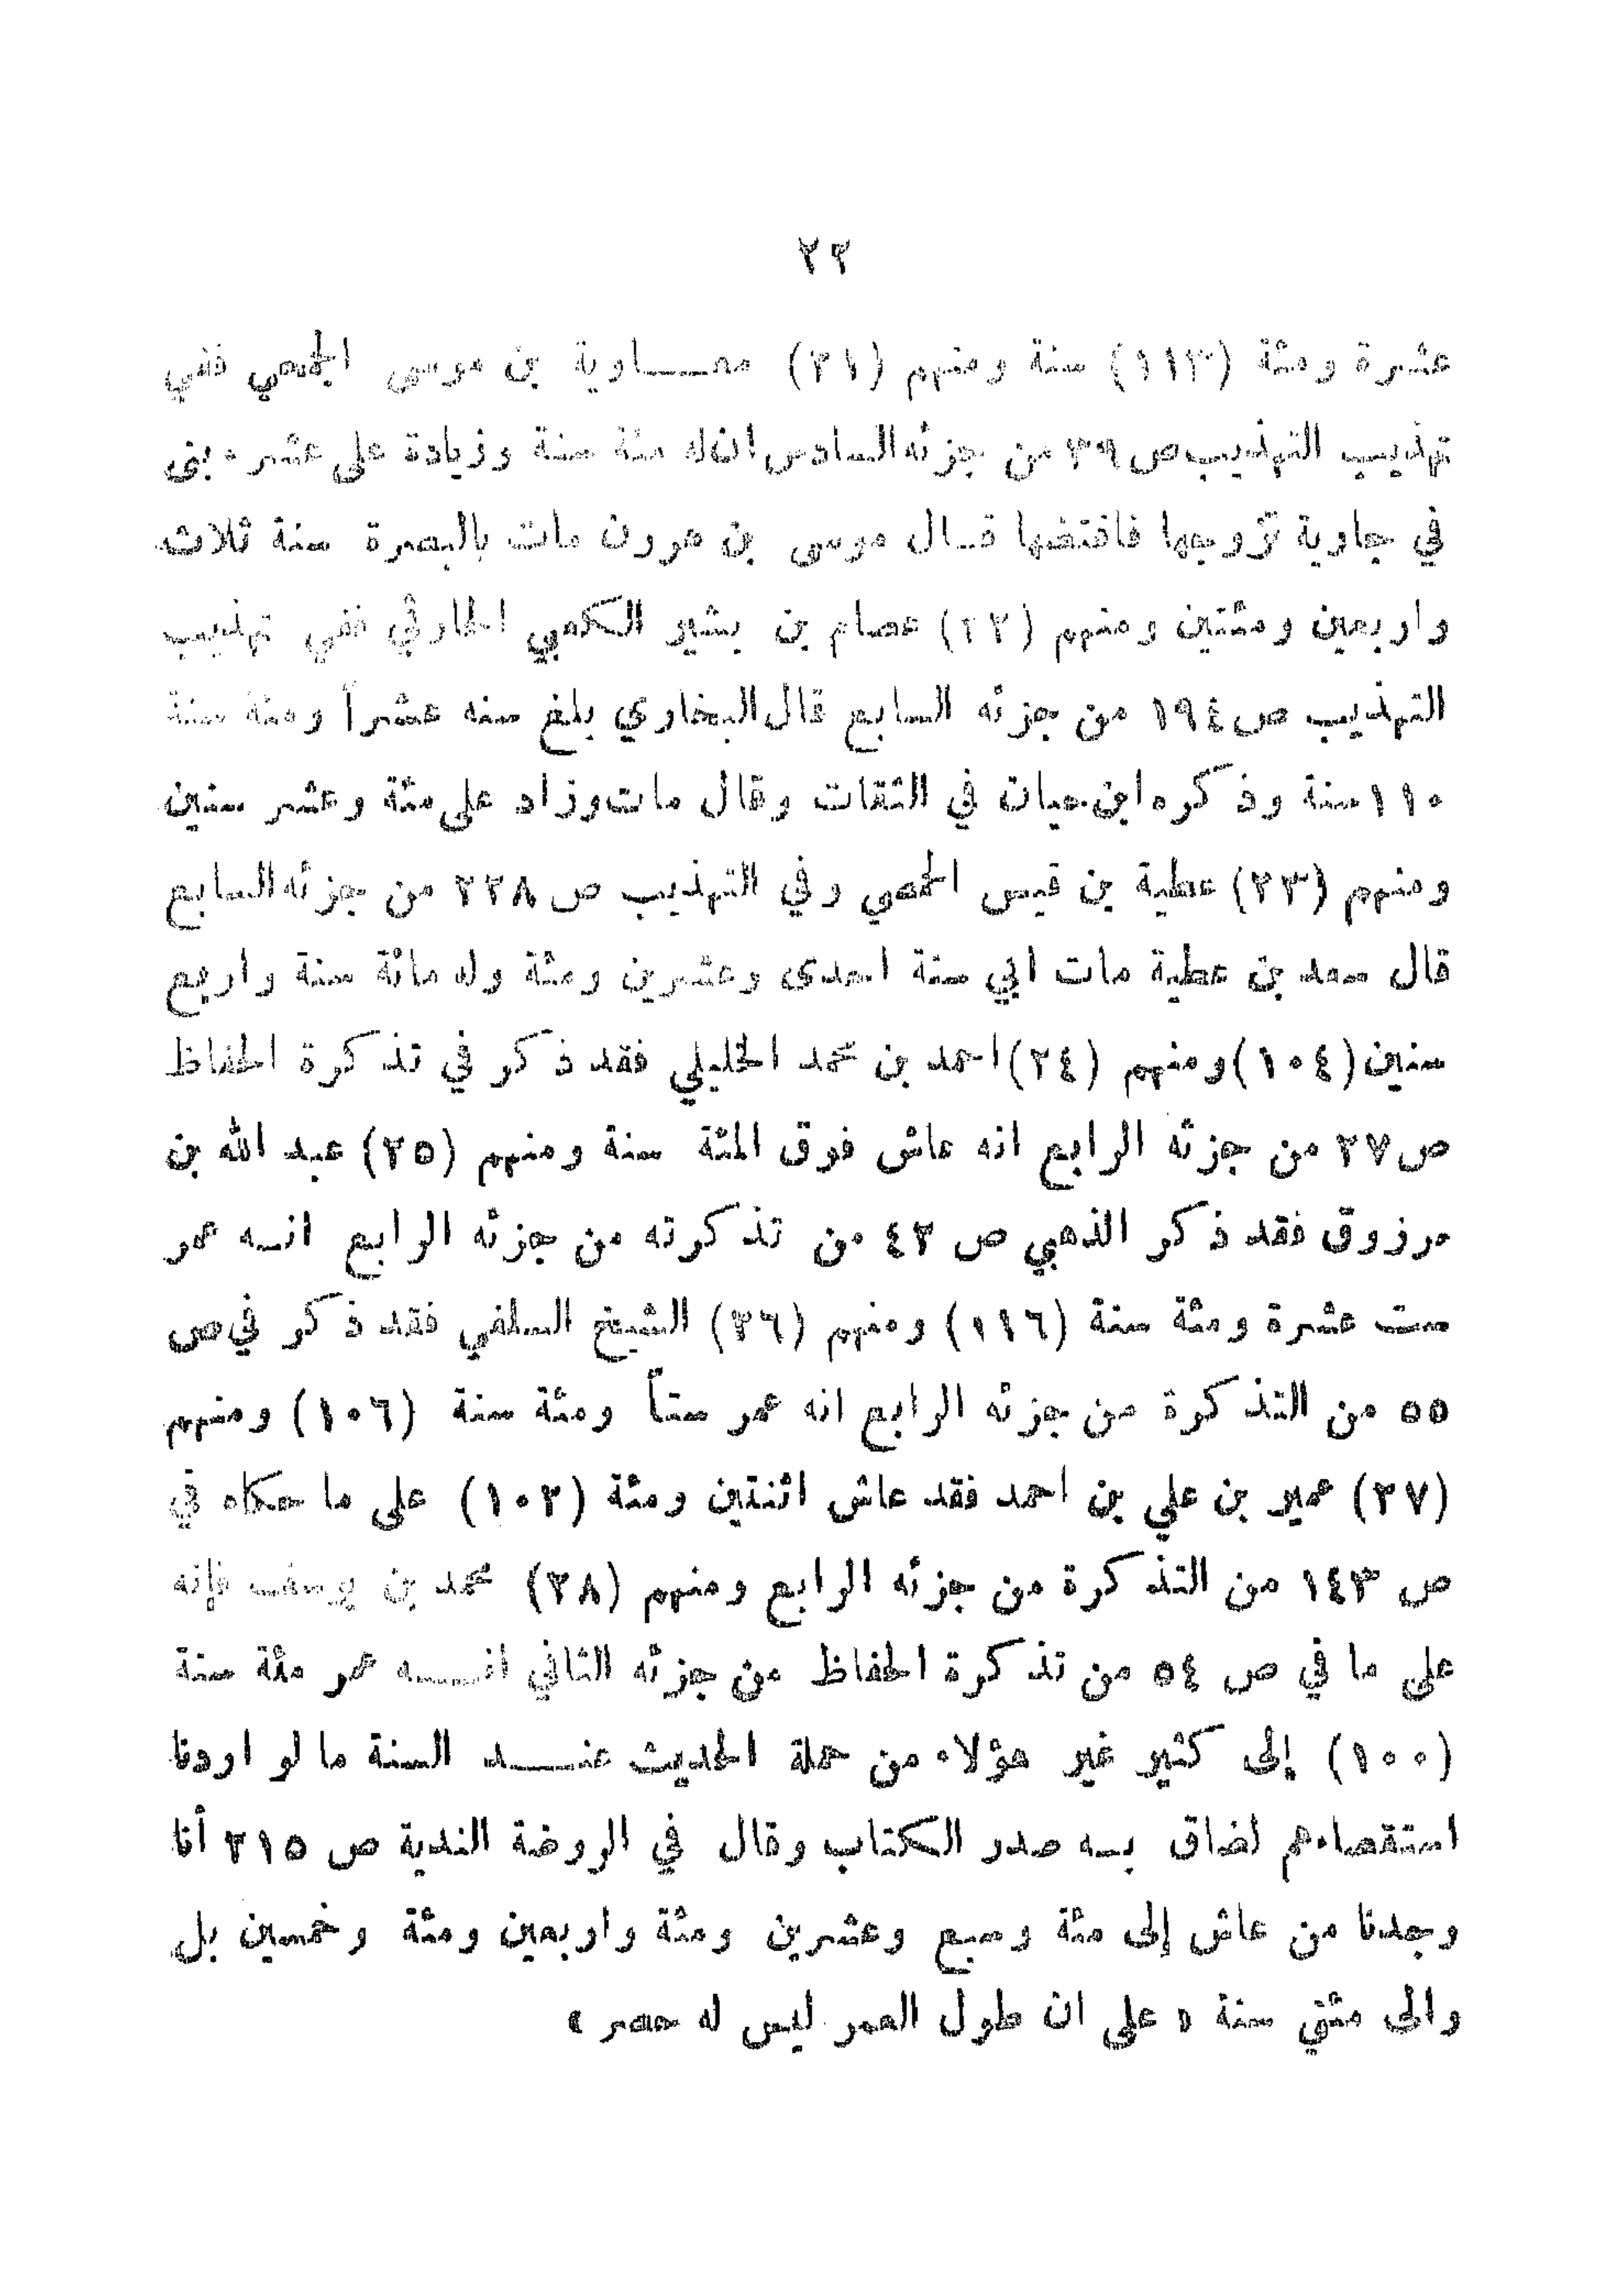 ٢٢
عشرة ومئة (١١٣) سنة ومنهم (٢١) معـــاوية بن موسى الجمحي ففي
تهذيب التهذيب ص ٣٩ من جزئه السادس ان له مئة سنة وزيادة على عشر بنى
في جارية تزوجها فافتضها قـال موسى بن هرون مات بالبصرة سنة ثلاث
واربعين ومئتين ومنهم (٢٢) عصام بن بشير الكعبي الحارثي ففي تهذيب
التهذيب ص ١٩٤ من جزئه السابع قال البخاري بلغ سنه عشراً ومئة سنة
١١٠ سنة وذكره ابن حبان في الثقات وقال مات وزاد على مئة وعشر سنين
ومنهم (٢٣) عطية بن قيس الحمصي وفي التهذيب ص ٢٢٨ من جزئه السابع
قال سعد بن عطية مات ابي سنة احدى وعشرين ومئة وله مائة سنة واربع
سنين (١٠٤) ومنهم (٢٤) احمد بن محمد الخليلي فقد ذكر في تذكرة الحفاظ
ص ٢٧ من جزئه الرابع انه عاش فوق المئة سنة ومنهم (٢٥) عبد الله بن
مرزوق فقد ذكر الذهبي ص ٤٢ من تذكرته من جزئه الرابع انـه عمر
ست عشرة ومئة سنة (١١٦) ومنهم (٢٦) الشيخ السلفي فقد ذكر في ص
٥٥ من التذكرة من جزئه الرابع انه عمر ستاً ومئة سنة (١٠٦) ومنهم
(٢٧) عمير بن علي بن احمد فقد عاش اثنتين ومئة (١٠٢) على ما حكاه في
ص ١٤٣ من التذكرة من جزئه الرابع ومنهم (٢٨) محمد بن يوسف فإنه
على ما في ص ٥٤ من تذكرة الحفاظ من جزئه الثاني انـــه عمر مئة سنة
(١٠٠) إلى كثير غير هؤلاء من حملة الحديث عنـــد السنة ما لو اردنا
استقصاءهم لضاق بـه صدر الكتاب وقال في الروضة الندية ص ٢١٥ أنا
وجدنا من عاش إلى مئة وسبع وعشرين ومئة واربعين ومئة وخمسين بل
والى مئتي سنة « على ان طول العمر ليس له حصر »